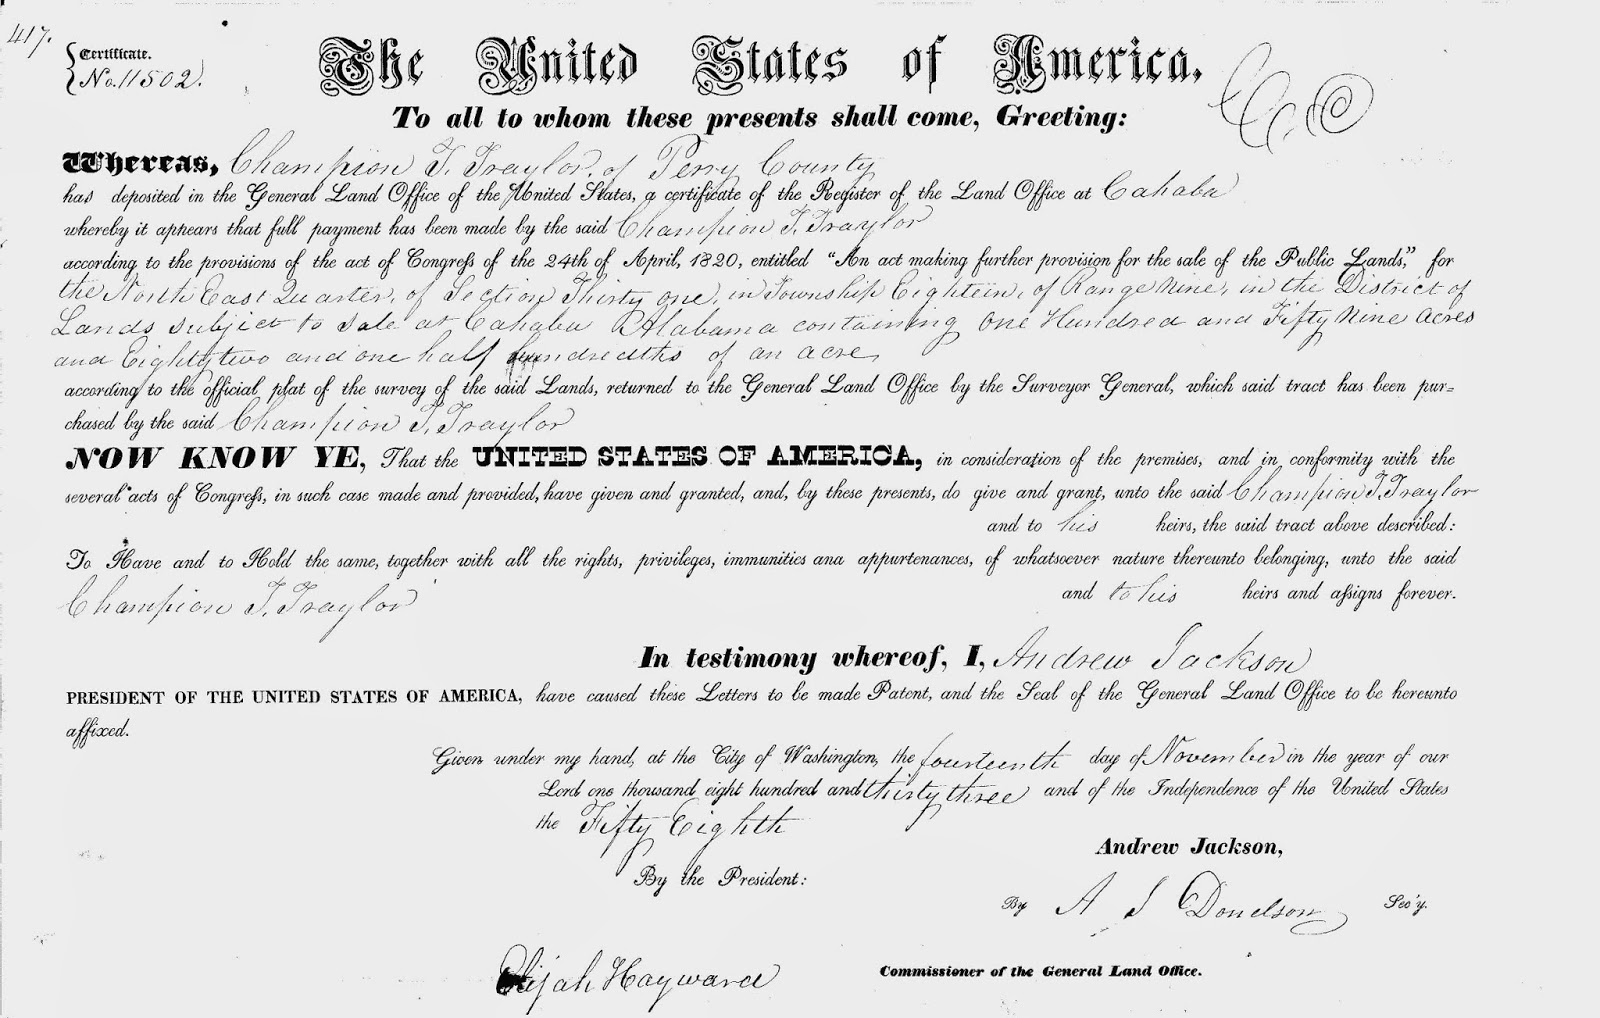 417.
Certificate.
No. 11502.
The United States of America,
To all to whom these presents shall come, Greeting:
Whereas, Champion T. Traylor, of Perry County
has deposited in the General Land Office of the United States, a certificate of the Register of the Land Office at Cahaba
whereby it appears that full payment has been made by the said Champion T. Traylor
according to the provisions of the act of Congress of the 24th of April, 1820, entitled "An act making further provision for the sale of the Public Lands," for
the North East Quarter, of Section Thirty one, in Township Eighteen, of Range Nine, in the District of
Lands subject to sale at Cahaba Alabama containing One Hundred and Fifty Nine acres
and Eighty two and one half hundredths of an acre,
according to the official plat of the survey of the said Lands, returned to the General Land Office by the Surveyor General, which said tract has been pur=
chased by the said Champion T. Traylor
NOW KNOW YE, That the UNITED STATES OF AMERICA, in consideration of the premises, and in conformity with the
several acts of Congress, in such case made and provided, have given and granted, and, by these presents, do give and grant, unto the said Champion T. Traylor
and to his heirs, the said tract above described:
To Have and to Hold the same, together with all the rights, privileges, immunities ana appurtenances, of whatsoever nature thereunto belonging, unto the said
Champion T. Traylor and to his heirs and assigns forever.
In testimony whereof, I, Andrew Jackson
PRESIDENT OF THE UNITED STATES OF AMERICA, have caused these Letters to be made Patent, and the Seal of the General Land Office to be hereunto
affixed.
Given under my hand, at the City of Washington, the fourteenth day of November in the year of our
Lord one thousand eight hundred and thirty three and of the Independence of the United States
the Fifty Eighth
Andrew Jackson,
By the President:
By A J Donelson Sec'y.
Elijah Hayward Commissioner of the General Land Office.